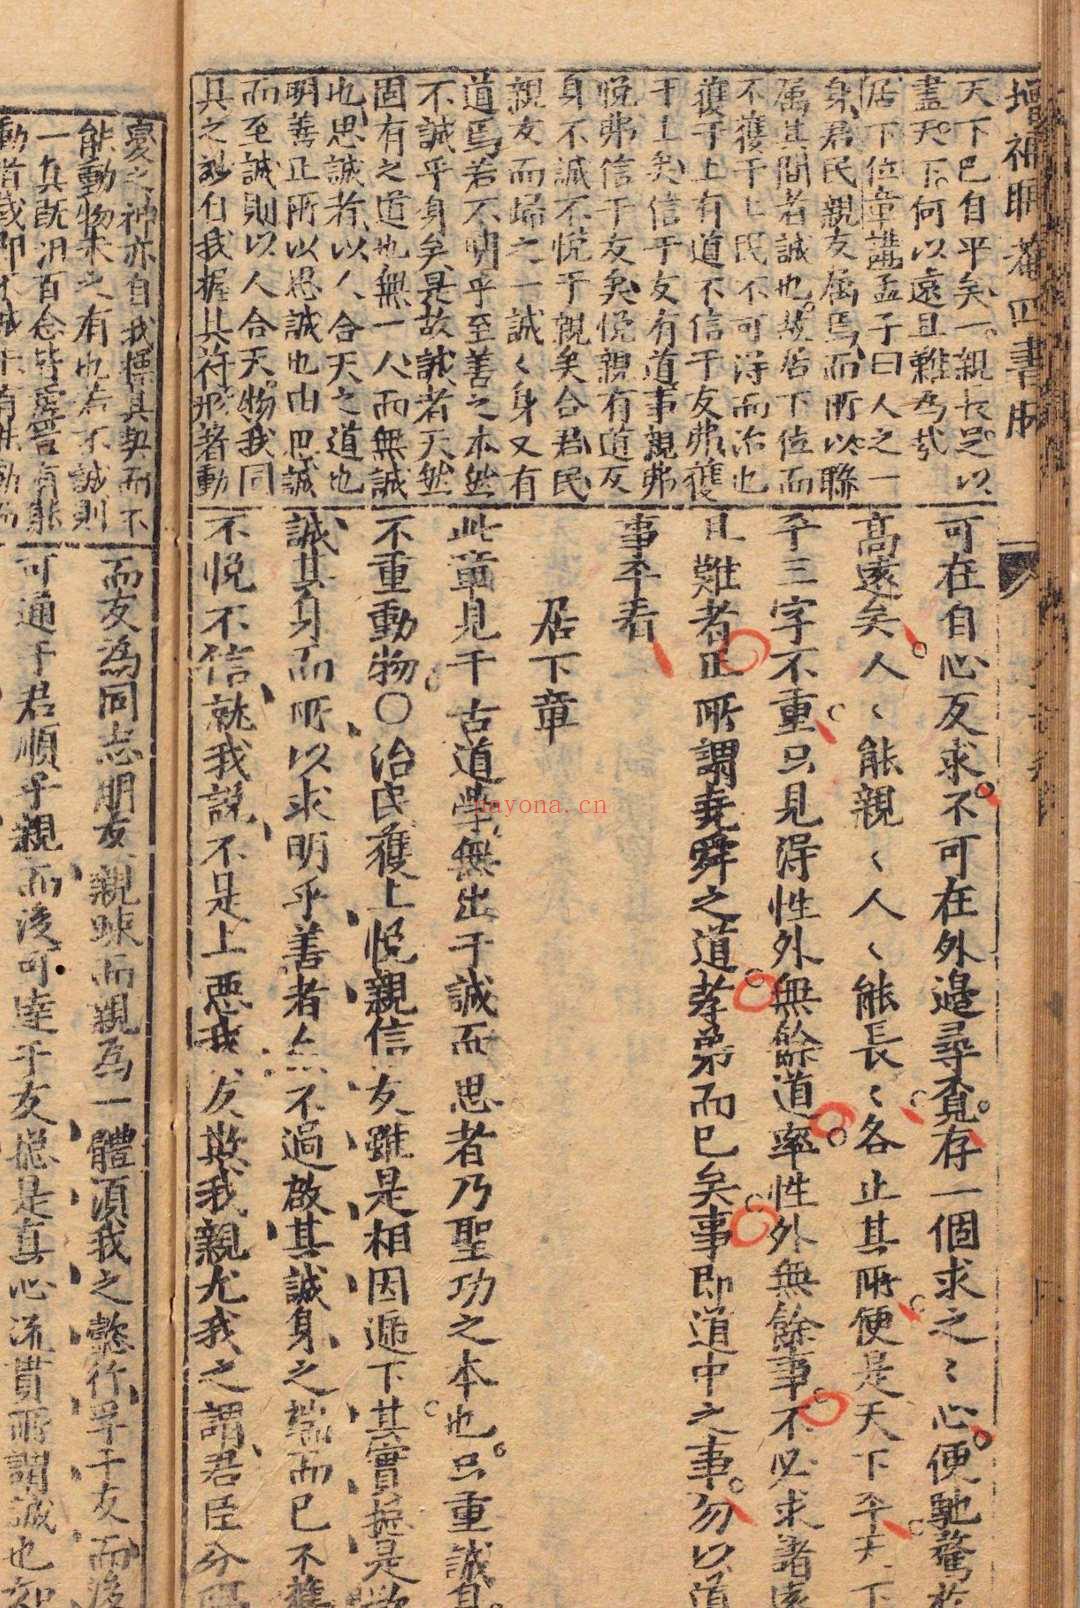 天下已自平矣一親長足以
盡天下何以遠且難為哉
居下位章講孟子曰人之一
身君民親友属焉而所以聯
属其間者誠也故居下位而
不獲于上民不可得而治也
獲于上有道不信于友弗獲
于上矣信于友有道事親弗
悦弗信于友矣悦親有道反
身不誠不悦于親矣合君民
親友而歸之一誠〻身又有
道焉若不明乎至善之本然
不誠乎身矣是故誠者天然
固有之道也無一人而無誠
也思誠者以人合天之道也
明善正所以思誠也由思誠
而至誠則以人合天物我同
具之妙自我握其符形著動
可在自心反求不可在外邉尋覔存一個求之〻心便馳騖於
高遠矣人〻能親〻人〻能長〻各止其所便是天下平天下
平三字不重只見得性外無餘道率性外無餘事不必求諸遠
且難者正所謂堯舜之道孝弟而已矣事即道中之事勿以道
事平看
居下章
此章見千古道學無出于誠而思者乃聖功之本也只重誠身
不重動物〇治民獲上悦親信友雖是相因遞下其實捴是
誠其身而所以求明乎善者亦不過啟其誠身之端而已不獲
不悦不信就我説不是上惡我友欺我親尤我之謂君臣分
憂之神亦自我標其契而不
能動物未之有也若不誠則
一真既汨百念皆虛豈有能
而友為同志朋友親踈而親為一體湏我之懿行孚于友而後
可通于君順乎親而後可達于友捴是真心流貫所謂誠也如